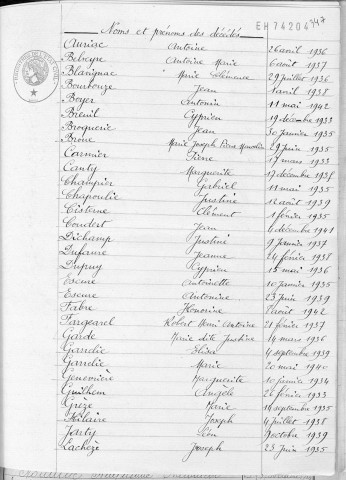 Noms et prénoms des décédés
EH74204
347
Aurisc Antoine 26 avril 1936
Antoine Marie 6 août 1937
Blavignac Marie Clémence 29 juillet 1936
Bourbouze Jean 1 avril 1938
Boyer Antonin 11 mai 1942
Breuil Cyprien 19 décembre 1933
Broquerie Jean 30 janvier 1935
Brone Marie Joseph Pierre 29 juin 1935
Carmier Pierre 17 mars 1933
Canty Marguerite 17 décembre 1935
Champier Gabriel 11 mai 1935
Chapoulie Justine 12 août 1939
Cisterne Clément 1 février 1935
Coudert Jean 4 décembre 1941
Dichamp Justine 9 janvier 1937
Dufaure Jeanne 24 février 1938
Dupuy Cyprien 15 mai 1936
Escure Antoinette 10 janvier 1935
Escure Antonine 23 juin 1939
Fabre Honorine 1 août 1942
Fargearel Robert Henri Antoine 21 février 1937
Garde Marie dite Justine 14 mars 1936
Garrelie Elisa 4 septembre 1939
Garrelie Marie 20 mai 1940
Genevrière Marguerite 10 janvier 1934
Guilhem Angèle 26 février 1933
Grèze Marie 14 septembre 1935
Hilaire Joseph 4 juillet 1938
Jarty Léon 9 octobre 1939
Lachèze Joseph 23 juin 1935